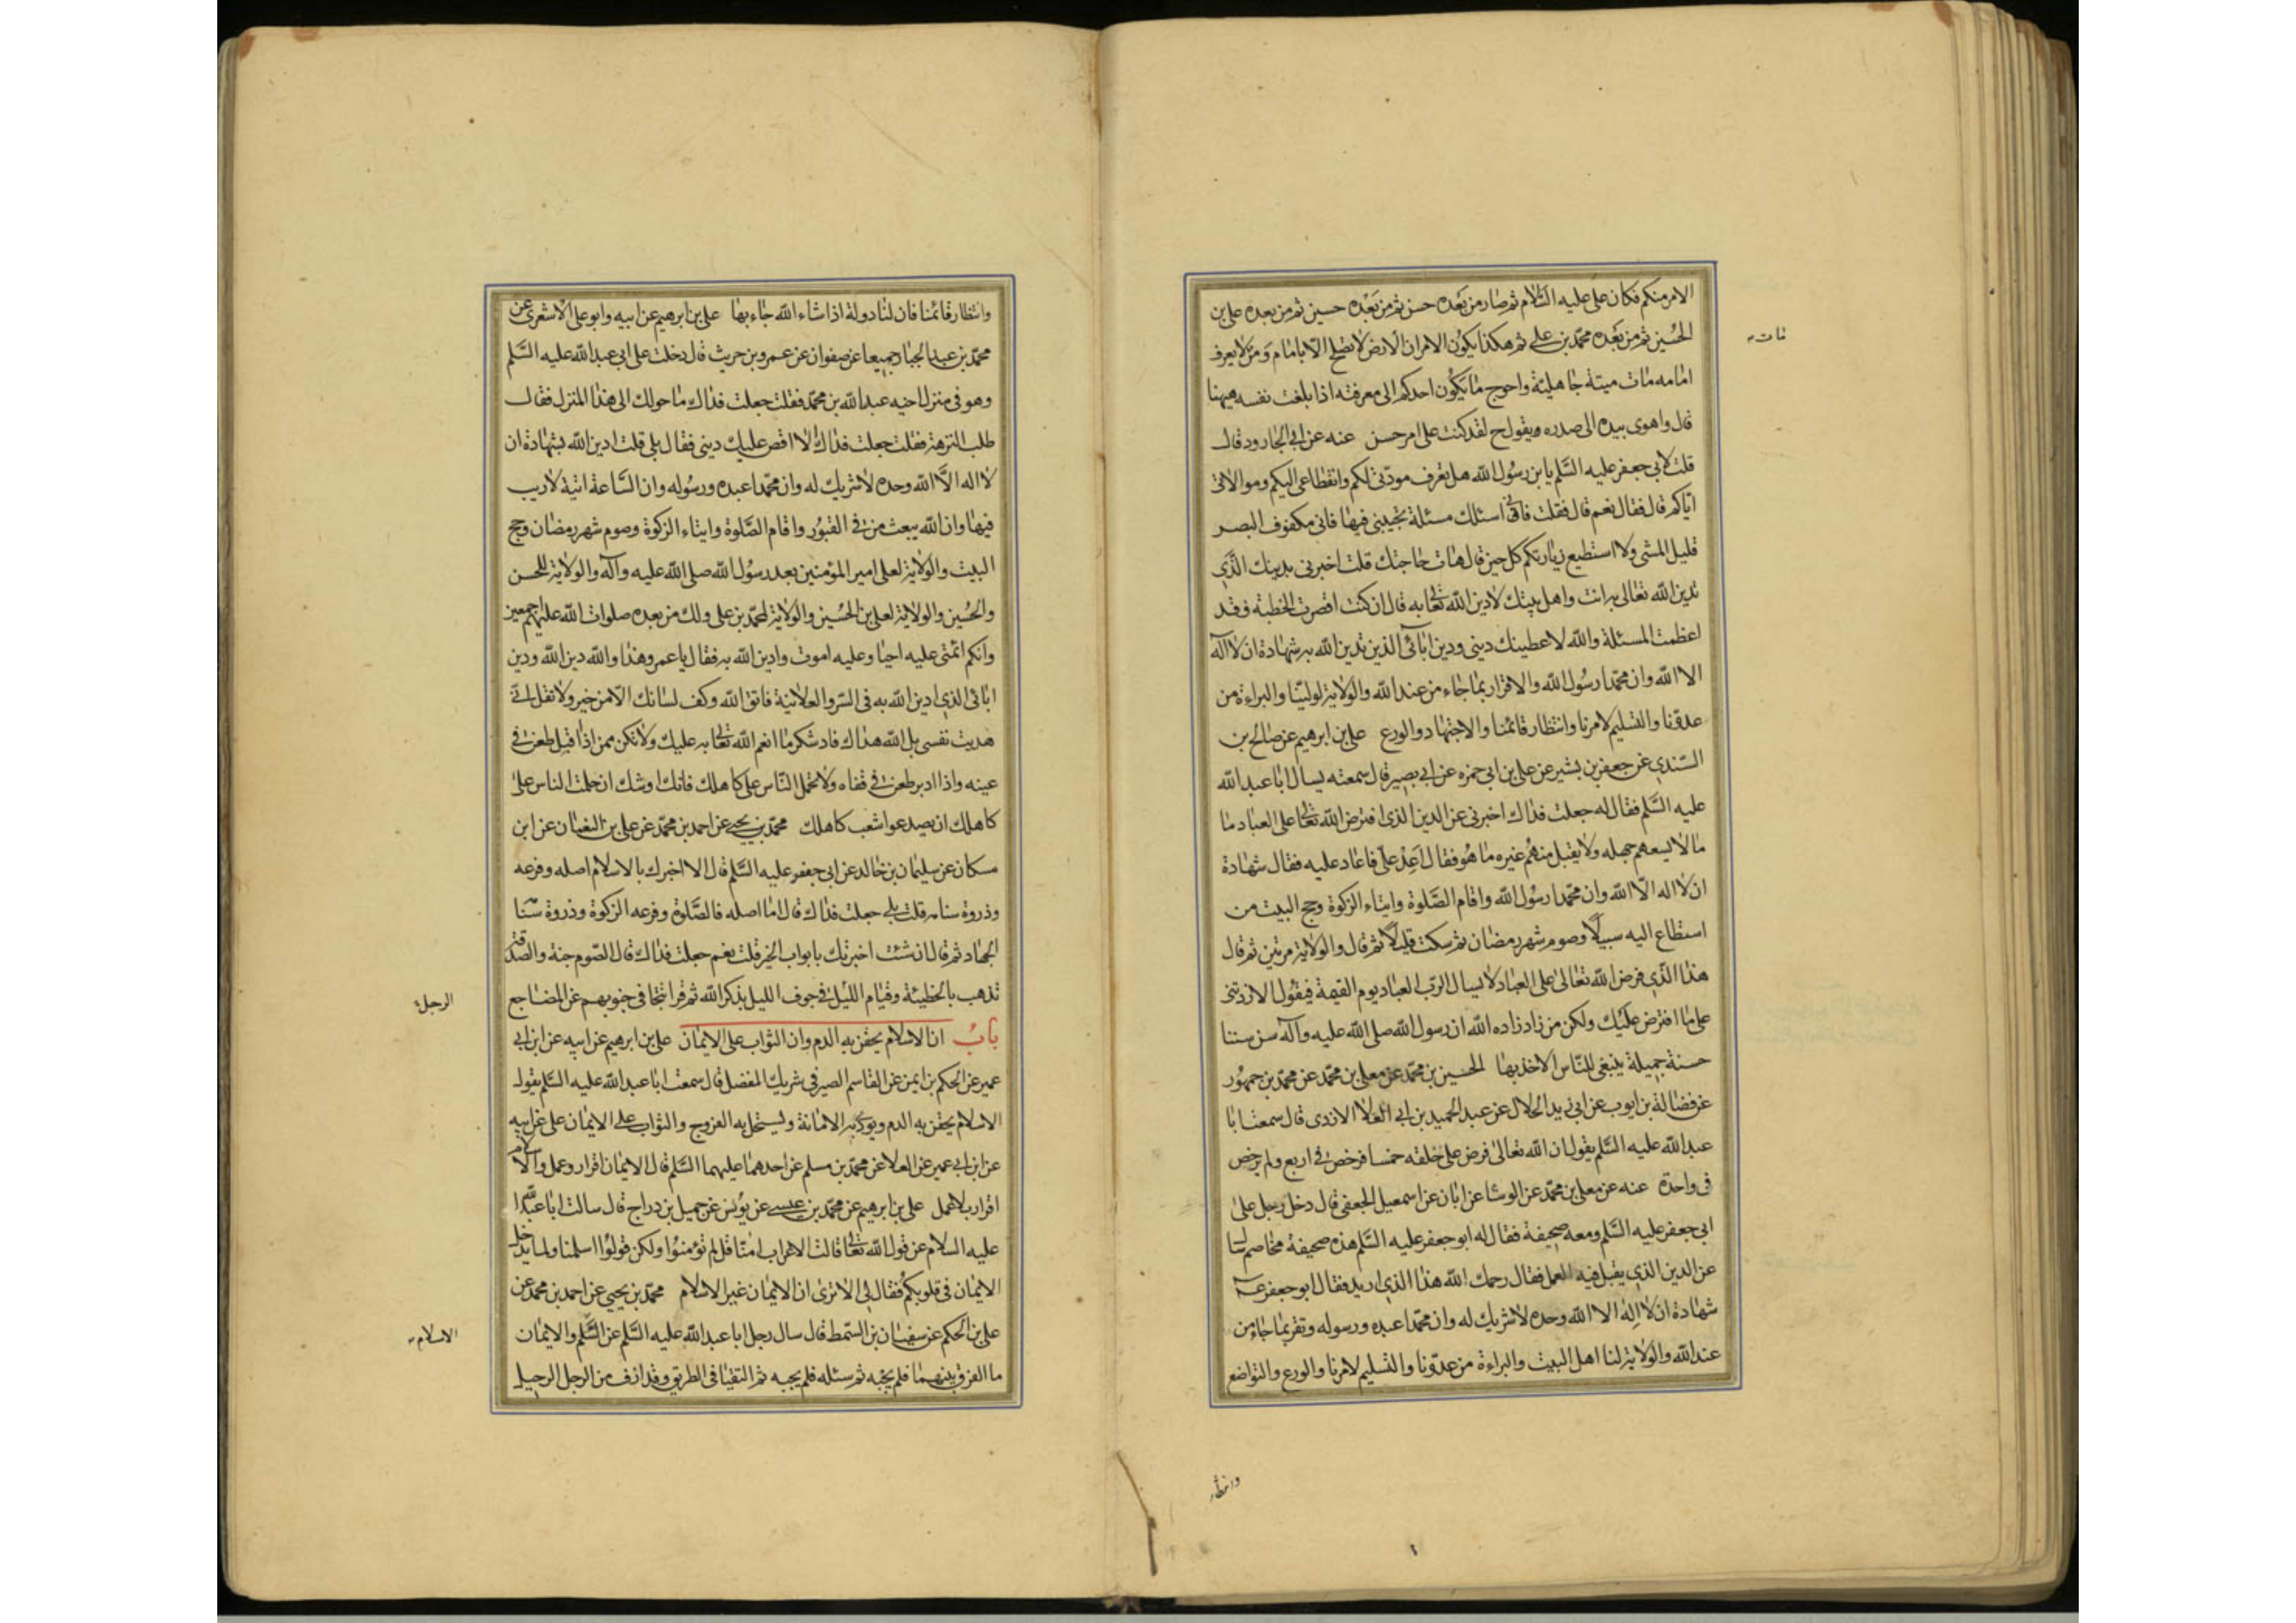 الامر منكم فكان علي عليه السّلام ثم صار من بعده حسن ثم من بَعْده حسين ثم من بعده علي بن
الحُسين ثم من بَعْده محمّد بن علي ثم هكذا يكوُن الامر ان الارض لا تصلح الّا بامام وَمن لا يعرف
مات
امامه مات ميتة جاهلية واحوج ما يكوُن احدكم الى معرفته اذا بلغت نفسه هيهنا
قال واهوى بيده الى صدره ويقول ح لقد كنت على امر حسن عنه عن ابى الجارود قال
قلت لابى جعفر عليه السّلم يا بن رسُول الله هل تعرف مودّتى لكم وانقطاعى اليكم وموالاتى
ايّاكم قال فقال نعم قال فقلت فانى اسئلك مسئلة تجيبنى فيها فانى مكفوف البصر
قليل المشى ولا استطيع زيارتكم كل حين قال هات حاجتك قلت اخبرنى بدينك الّذى
تدين الله تعالى به انت واهل بيتك لادين الله تعا به قال ان كنت اقصرت الخطبة فقد
اعظمت المسئلة والله لاعطينك دينى ودين ابائى الذين تدين الله به شهادة ان لا اله
الا الله وان محمّدا رسُول الله والاقرار بما جاء من عند الله والولاية لوليّنا والبراءة من
عدوّنا والتسليم لامرنا وانتظار قائمنا والاجتهاد والورع علي بن ابرهيم عن صالح بن
السّندى عن جعفر بن بشير عن علي بن ابى حمزه عن ابى بصير قال سمعته يسال ابا عبد الله
عليه السّلم فقال له جعلت فداك اخبرنى عن الدين الذى افترض الله تعا على العباد ما
ما لا يسعهم جهله ولا يقبل منهُم غيره ما هُو فقال اَعِدْ علىّ فاعاد عليه فقال شهادة
ان لا اله الّا الله وان محمّدا رسُول الله واقام الصّلوة وايتاء الزكوة وحج البيت من
استطاع اليه سبيلًا وصوم شهر رمضان ثم سكت قليلًا ثم قال والولاية مرتين ثم قال
هذا الّذى فرض الله تعالى على العباد لا يسال الربّ العباد يوم القيمة فيقُول الا زدتنى
على ما افترض عليك ولكن من زاد زاده الله ان رسول الله صلى الله عليه وآله سن سننا
حسنة جميلة ينبغى للنّاس الاخذ بها الحسين بن محمّد عن معلى بن محمّد عن محمّد بن جمهُور
عن فضالة بن ايوب عن ابى زيد الحلال عن عبد الحميد بن ابى العلا الازدى قال سمعت ابا
عبد الله عليه السّلم يقول ان الله تعالى فرض على خلقه خمسا فرخص فى اربع ولم يرخص
فى واحدة عنه عن معلى بن محمّد عن الوشا عن ابان عن اسمعيل الجعفى قال دخل رجل على
ابى جعفر عليه السّلم ومعه صحيفة فقال له ابو جعفر عليه السّلم هذه صحيفة مخاصم سال
عن الدين الذى يقبل فيه العمل فقال رحمك الله هذا الذى اريد فقال ابو جعفر عـ
شهادة ان لا اله الا الله وحده لا شريك له وان محمّدا عبده ورسوله وتقر بما جاء من
عند الله والولاية لنا اهل البيت والبراءة من عدوّنا والتسليم لامرنا والورع والتواضع
وانتظار
وانتظار قائمنا فان لنا دولة اذا شاء الله جاء بها علي بن ابرهيم عن ابيه وابو علي الاشعرى عن
محمّد بن عبد الجبار جميعا عن صفوان عن عمرو بن حريث قال دخلت على ابى عبد الله عليه السّلم
وهو فى منزل اخيه عبد الله بن محمّد فقلت جعلت فداك ما حولك الى هذا المنزل فقال
طلب النزهة فقلت جعلت فداك الا اقص عليك دينى فقال بلى قلت ادين الله بشهادة ان
لا اله الّا الله وحده لا شريك له وان محمّدا عبده ورسُوله وان السّاعة اتية لا ريب
فيها وان الله يبعث من فى القبُور واقام الصّلوة وايتاء الزكوة وصوم شهر رمضان وحج
البيت والولاية لعلى امير المؤمنين بعد رسُول الله صلى الله عليه وآله والولاية للحسن
والحُسين والولاية لعلي بن الحُسين والولاية لمحمّد بن على ولك من بعده صلوات الله عليهم اجمعين
وانكم ائمتى عليه احيا وعليه اموت وادين الله به فقال يا عمرو هذا والله دين الله ودين
ابائى الذى ادين الله به فى السّر والعلانية فاتق الله وكف لسانك الّا من خير ولا تقل انى
هديت نفسى بل الله هداك فاد شكر ما انعم الله تعا به عليك ولا تكن ممن اذا اقبل طعن فى
عينه واذا ادبر طعن فى قفاه ولا تحمل النّاس على كاهلك فانك اوشك ان حملت الناس على
كاهلك ان يصدعوا شعب كاهلك محمّد بن يحيى عن احمد بن محمّد عن علي بن النعمان عن ابن
مسكان عن سليمان بن خالد عن ابى جعفر عليه السّلم قال الا اخبرك بالاسلام اصله وفرعه
وذروة سنامه قلت بلى جعلت فداك قال اما اصله فالصّلوة وفرعه الزكوة وذروة سنامه
الجهاد ثم قال ان شئت اخبرتك بابواب الخير قلت نعم جعلت فداك قال الصّوم جنة والصدقة
تذهب بالخطيئة وقيام الليل فى جوف الليل بذكر الله ثم قرا تتجافى جنوبهم عن المضاجع
الرجل
بابُ ان الاسلام يحقن به الدم وان الثواب على الايمان علي بن ابرهيم عن ابيه عن ابن ابى
عمير عن الحكم بن ايمن عن القاسم الصيرفى شريك المفضل قال سمعت ابا عبد الله عليه السّلم يقول
الاسلام يحقن به الدم ويودى به الامانة ويستحل به الفروج والثواب على الايمان على عن ابيه
عن ابن ابى عمير عن العلا عن محمّد بن مسلم عن احدهما عليهما السّلم قال الايمان اقرار وعمل والاسلام
اقرار بلا عمل علي بن ابرهيم عن محمّد بن عيسى عن يُونس عن جميل بن دراج قال سالت ابا عبد الله
عليه السّلام عن قول الله تعا قالت الاعراب امنّا قل لم تؤمنوُا ولكن قولُوا اسلمنا ولما يدخل
الايمان فى قلوبكُم فقال لى الا ترى ان الايمان غير الاسلام محمّد بن يحيى عن احمد بن محمد عن
علي بن الحكم عن سفيان بن السّمط قال سال رجل ابا عبد الله عليه السّلم عن السّلم والايمان
الاسلام
ما الفرق بينهما فلم يجبْه ثم سئله فلم يجبه ثم التقيا فى الطريق وقد ازف من الرجل الرحيل